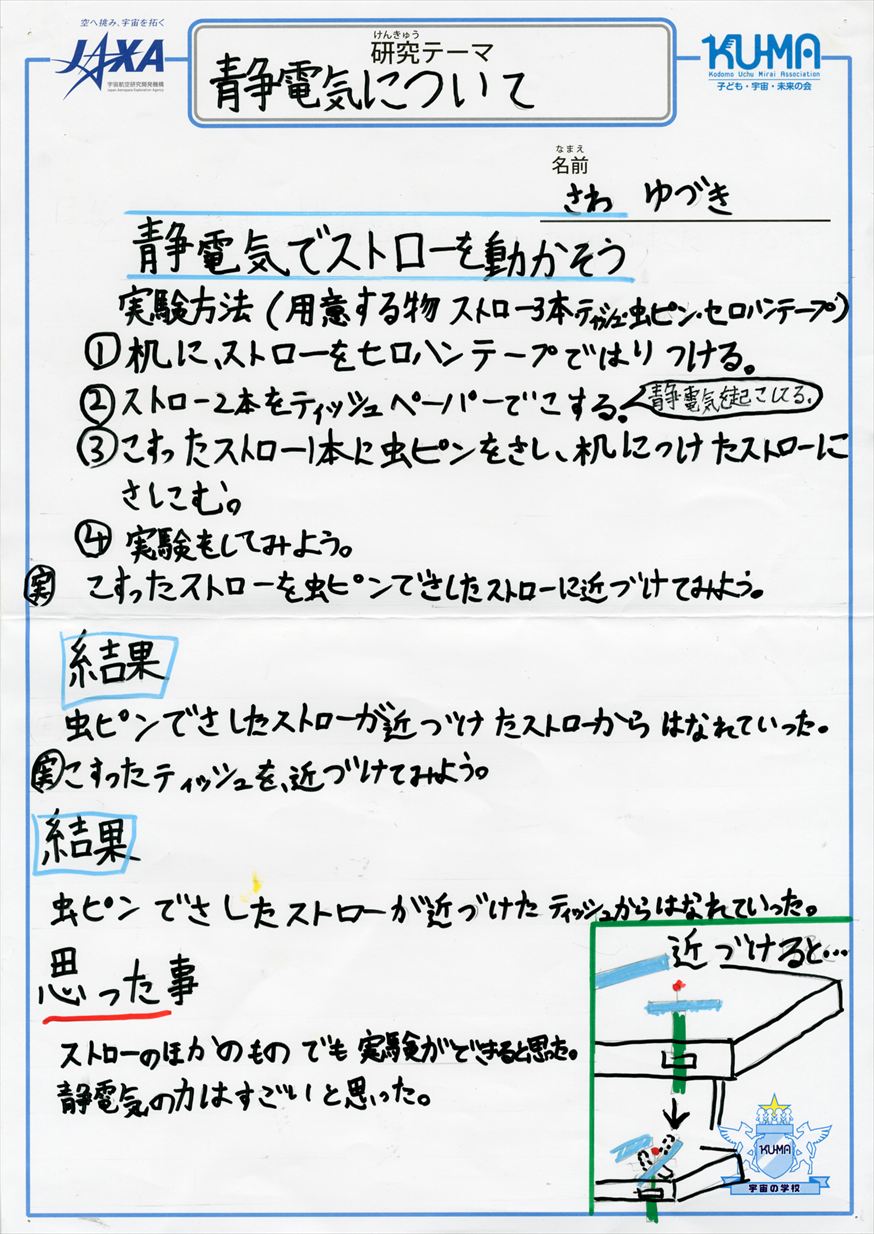 空へ挑み、宇宙を拓く
JAXA
宇宙航空研究開発機構
Japan Aerospace Exploration Agency
けんきゅう
研究テーマ
静電気について
KU-MA
Kodomo Uchu Mirai Association
子ども・宇宙・未来の会
なまえ
名前
さわ ゆづき
静電気でストローを動かそう
実験方法(用意する物 ストロー3本ティッシュ・虫ピン・セロハンテープ)
①机に、ストローをセロハンテープではりつける。
②ストロー2本をティッシュペーパーでこする。
静電気を起こしてる。
③こすったストロー1本に虫ピンをさし、机につけたストローに
さしこむ。
④実験をしてみよう。
実 こすったストローを虫ピンでさしたストローに近づけてみよう。
結果
虫ピンでさしたストローが近づけたストローからはなれていった。
実 こすったティッシュを、近づけてみよう。
結果
虫ピンでさしたストローが近づけたティッシュからはなれていった。
思った事
ストローのほかのものでも実験ができると思った。
静電気の力はすごいと思った。
近づけると…
KU-MA
宇宙の学校